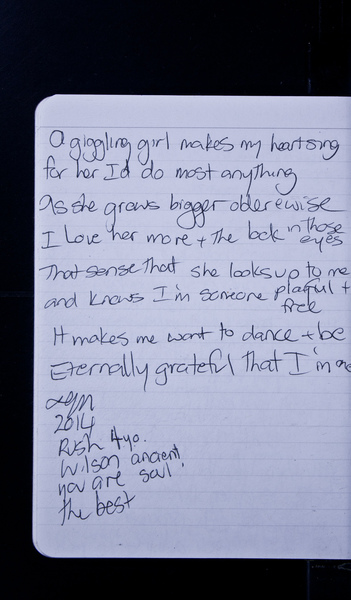 A giggling girl makes my heart sing
for her I'd do most anything
As she grows bigger older + wise
I love her more + the look in those eyes
That sense that she looks up to me
and knows I'm someone playful + free
It makes me want to dance + be
Eternally grateful that I'm
2014
Rush 4yo.
Wilson ancient
you are soul!
the best